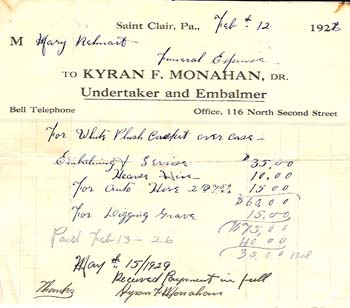 Saint Clair, Pa., Feb 12 1926
M Mary
Funeral Expense
TO KYRAN F. MONAHAN, DR.
Undertaker and Embalmer
Bell Telephone Office, 116 North Second Street
For White Plush Casket over case
Embalming & Service $35.00
Hearse Hire 10.00
For Auto Hire 15.00
$60.00
For Digging Grave 15.00
$75.00
Paid Feb 13-26 40.00
35.00 Bal
May 15/1929
Received Payment in full
Thanks Kyran F Monahan